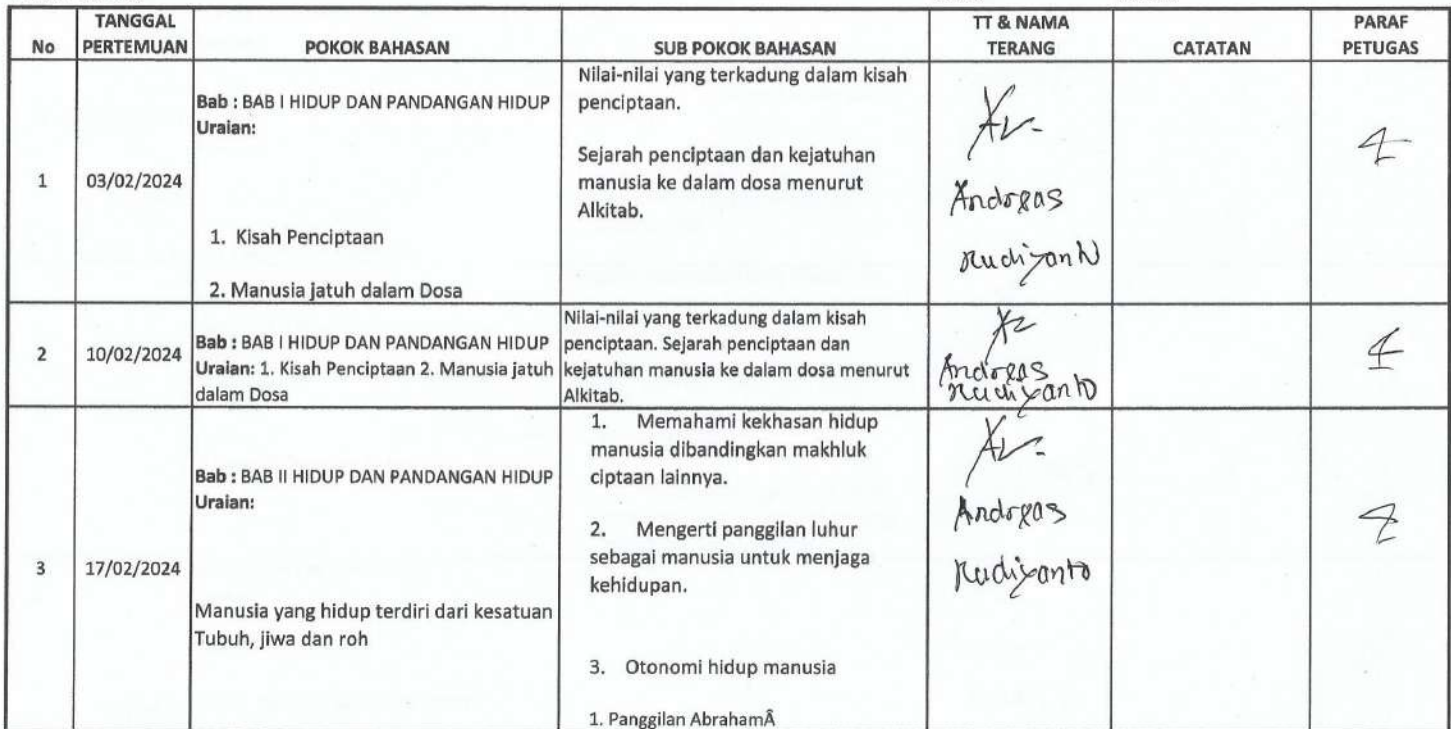 No
TANGGAL
PERTEMUAN
POKOK BAHASAN
SUB POKOK BAHASAN
TT & NAMA
TERANG
CATATAN
PARAF
PETUGAS
1
03/02/2024
Bab : BAB I HIDUP DAN PANDANGAN HIDUP
Uraian:
1. Kisah Penciptaan
2. Manusia jatuh dalam Dosa
Nilai-nilai yang terkadung dalam kisah
penciptaan.
Sejarah penciptaan dan kejatuhan
manusia ke dalam dosa menurut
Alkitab.
Andreas
Rudiyanto
2
10/02/2024
Bab : BAB I HIDUP DAN PANDANGAN HIDUP
Uraian: 1. Kisah Penciptaan 2. Manusia jatuh
dalam Dosa
Nilai-nilai yang terkadung dalam kisah
penciptaan. Sejarah penciptaan dan
kejatuhan manusia ke dalam dosa menurut
Alkitab.
Andreas
Rudiyanto
3
17/02/2024
Bab : BAB II HIDUP DAN PANDANGAN HIDUP
Uraian:
Manusia yang hidup terdiri dari kesatuan
Tubuh, jiwa dan roh
1. Memahami kekhasan hidup
manusia dibandingkan makhluk
ciptaan lainnya.
2. Mengerti panggilan luhur
sebagai manusia untuk menjaga
kehidupan.
3. Otonomi hidup manusia
1. Panggilan AbrahamÂ
Andreas
Rudiyanto